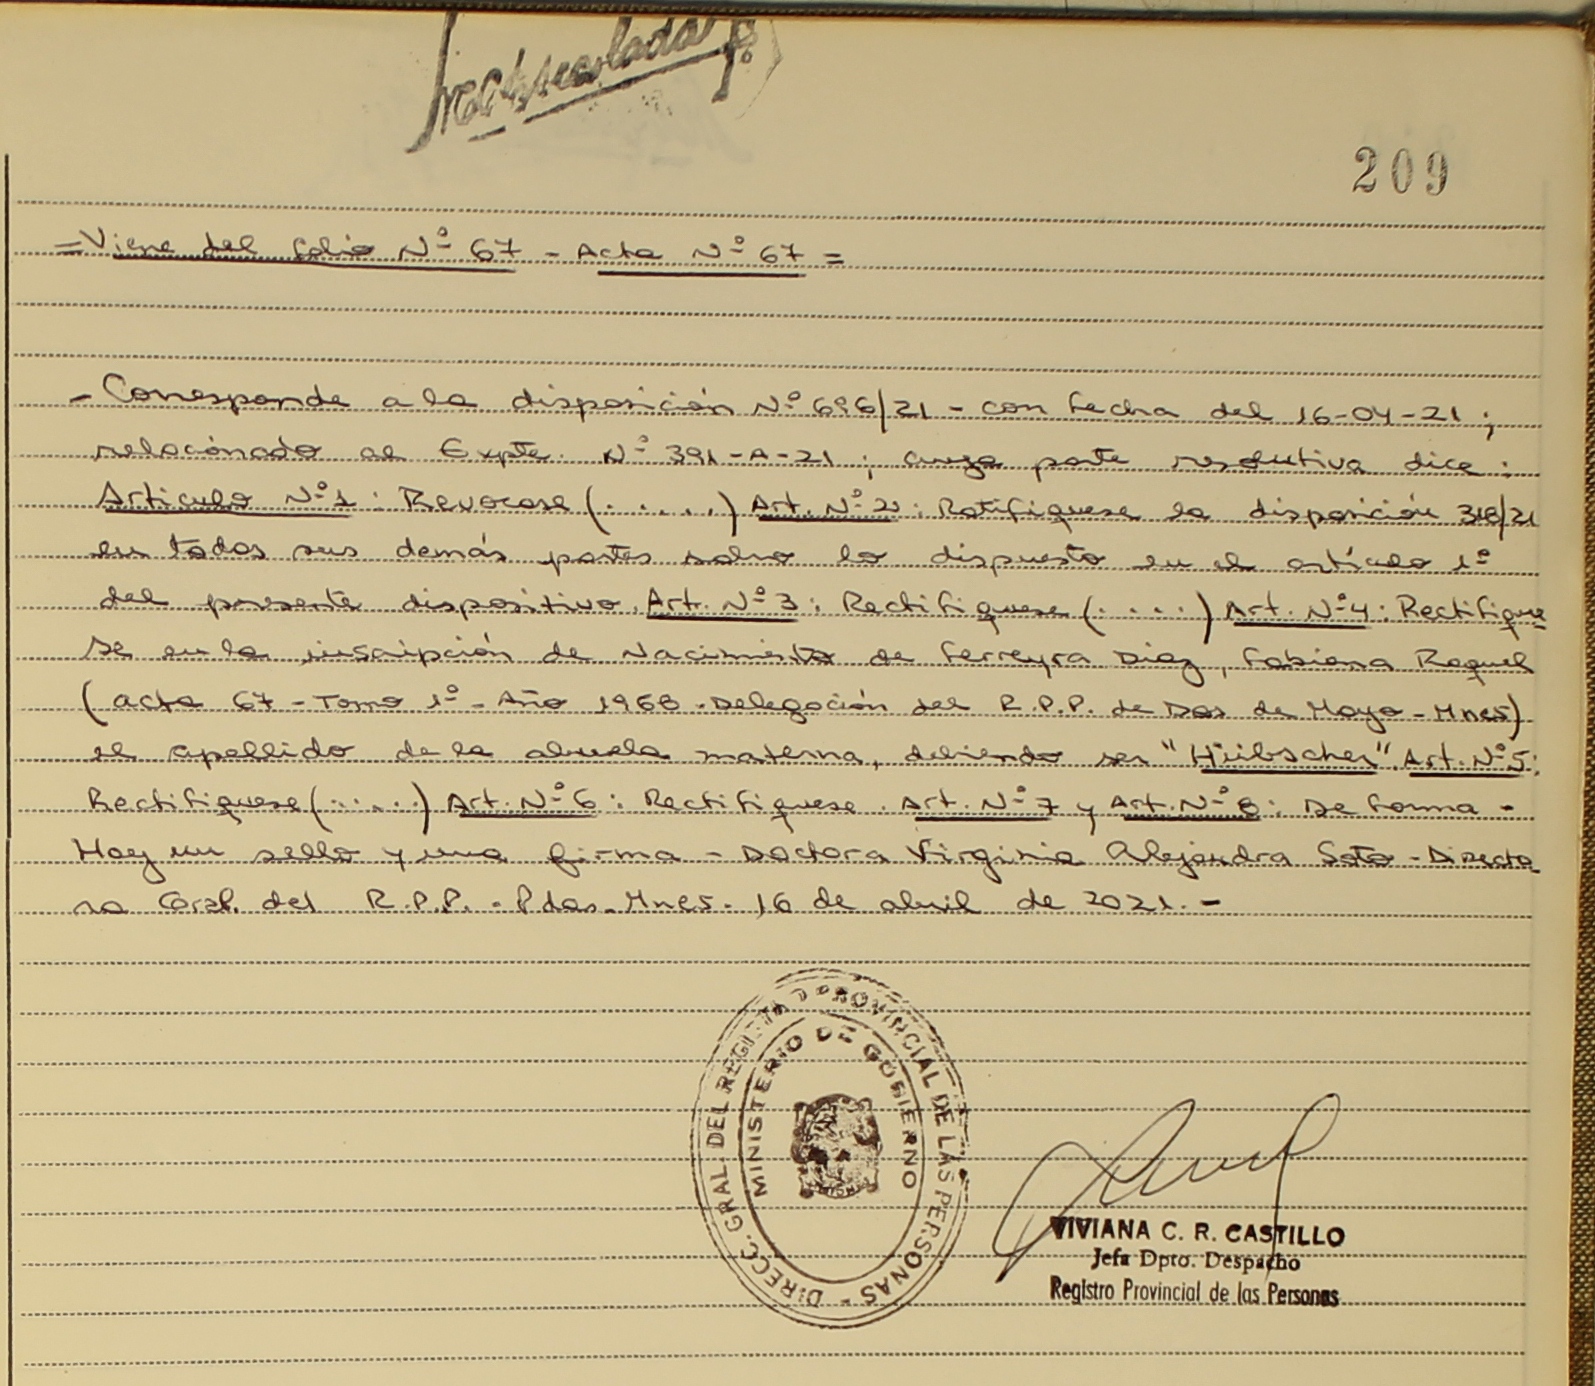 209
=Viene del folio Nº 67 - Acta Nº 67 =
- Corresponde a la disposición Nº 696/21 - con fecha del 16-04-21 ;
relacionado al Expte. Nº 391-A-21 ; cuya parte resolutiva dice :
Articulo Nº1 : Revocase (.....) Art. Nº 2 : Ratifiquese la disposición 318/21
en todas sus demás partes salvo lo dispuesto en el artículo 1º
del presente dispositivo. Art. Nº 3 : Rectifiquese (.....) Art. Nº4 : Rectifique
se en la inscripción de Nacimiento de Ferreyra Diaz, Fabiana Raquel
(acta 67 - Tomo 1º - Año 1968 - Delegación del R.P.P. de Dos de Mayo - Mnes)
el apellido de la abuela materna, debiendo ser "Hübscher". Art. Nº5:
Rectifiquese (.....) Art. Nº 6 : Rectifiquese. Art. Nº 7 y Art. Nº 8 : De forma -
Hay un sello y una firma - Doctora Virginia Alejandra Soto - Directo
ra Gral. del R.P.P. - Pdas. Mnes. 16 de abril de 2021. -
DIRECC. GRAL. DEL REGISTRO PROVINCIAL DE LAS PERSONAS -
MINISTERIO DE GOBIERNO
VIVIANA C. R. CASTILLO
Jefa Dpto. Despacho
Registro Provincial de las Personas